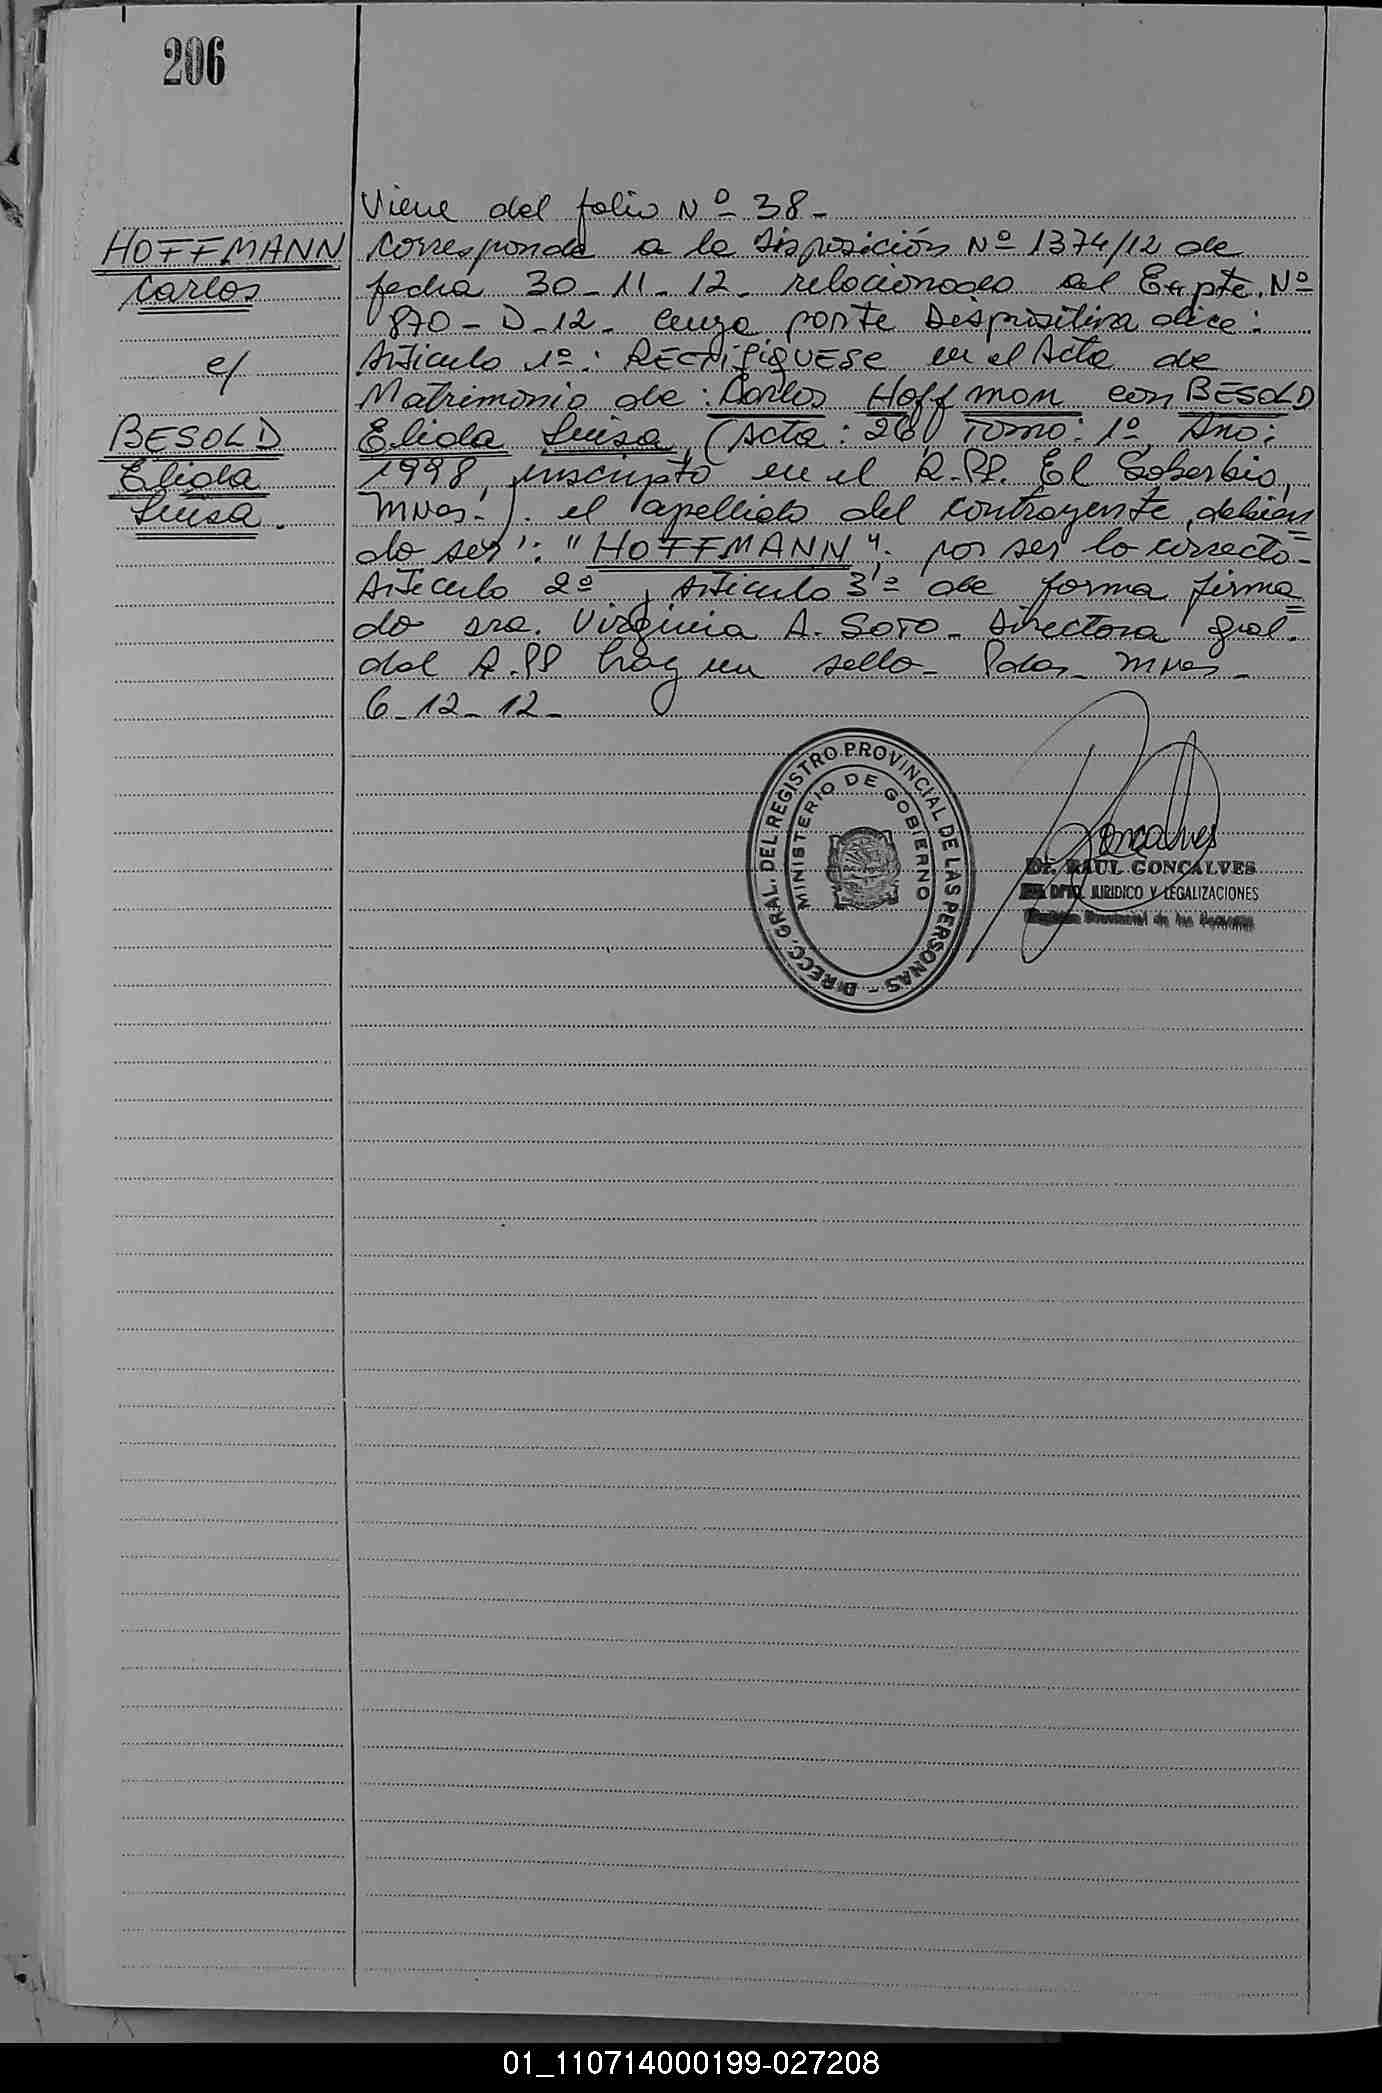 206
Viene del folio Nº 38-
HOFFMANN
Carlos
c/
BESOLD
Elida
Luisa.
Corresponde a la Disposición Nº 1374/12 de
fecha 30-11-12- relacionado al Expte. Nº
870-D-12- cuya parte Dispositiva dice:
Articulo 1º: RECTIFIQUESE en el Acta de
Matrimonio de: Carlos Hoffman con BESOLD
Elida Luisa, (Acta: 26 Tomo: 1º Año:
1998, inscripto en el R.PP. El Soberbio,
Mnes.). el apellido del contrayente, debien
do ser: "HOFFMANN". por ser lo correcto-
Articulo 2º, Articulo 3º de forma firma
do sra. Virginia A. Soto- Directora Gral.
del R.PP hay un sello- Pdas- Mnes-
6-12-12-
DIRECC. GRAL. DEL REGISTRO PROVINCIAL DE LAS PERSONAS -
MINISTERIO DE GOBIERNO
Goncalves
Dr. RAUL GONCALVES
DPTO. JURIDICO Y LEGALIZACIONES
Provincial de las Personas
01_110714000199-027208